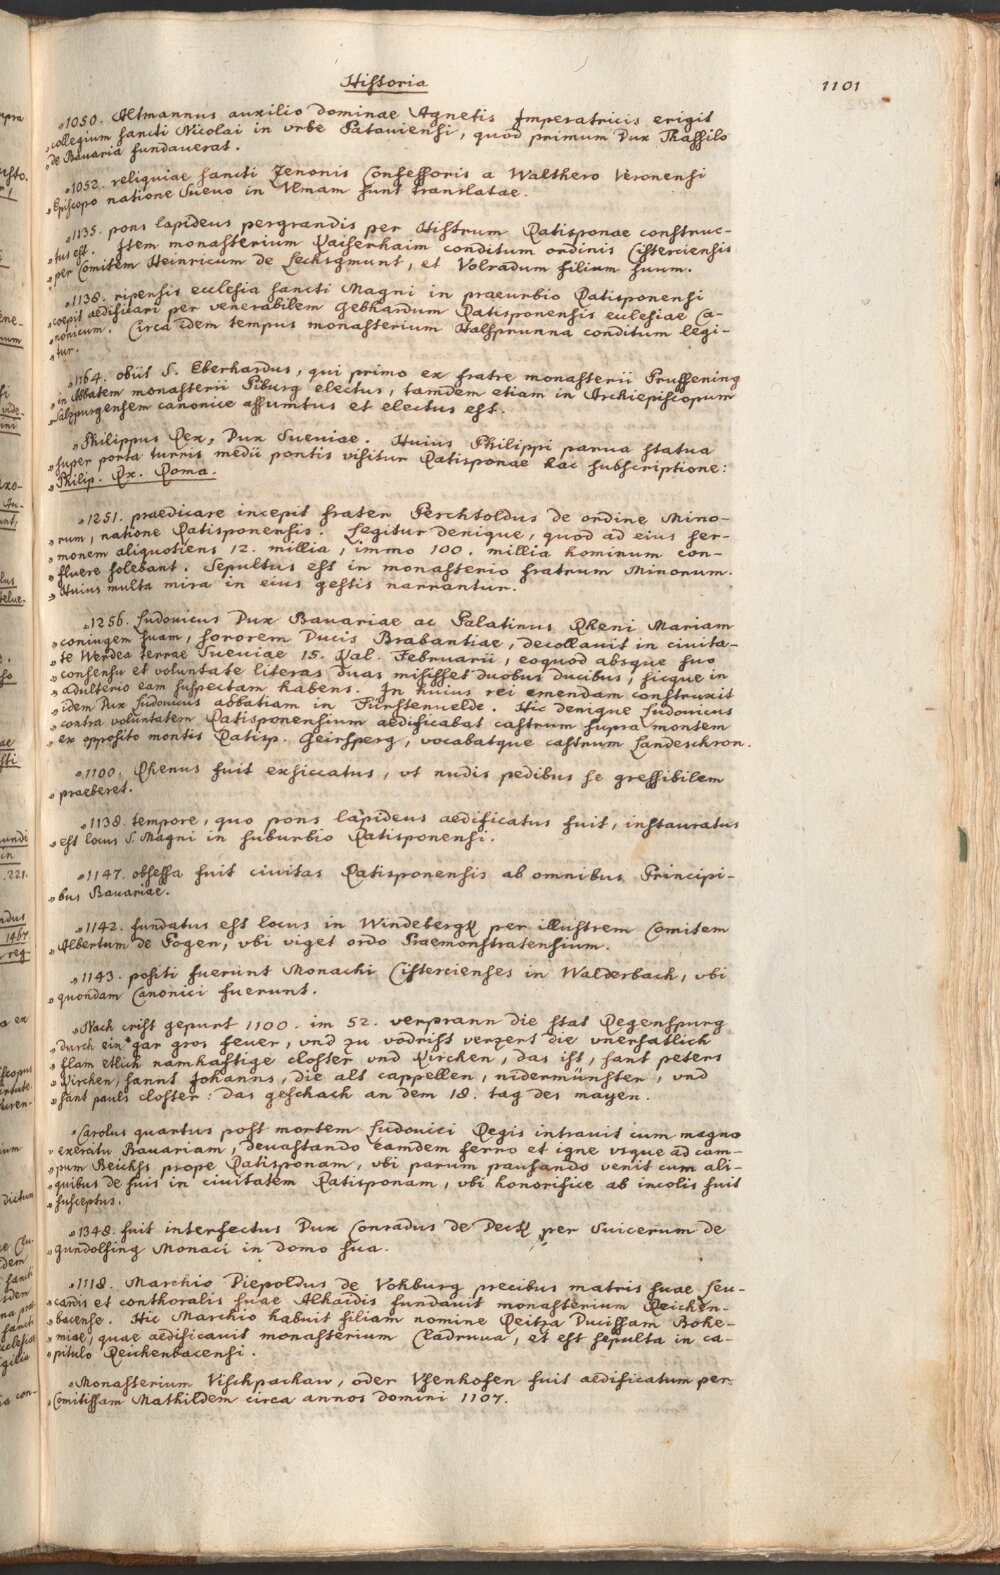 Historia
1101
„1050. Altmannus auxilio dominae Agnetis Imperatricis erigit
„collegium sancti Nicolai in vrbe Patauiensi, quod primum Dux Thassilo
„de Bauaria fundauerat.
„1052. reliquiae sancti Zenonis Confessoris a Walthero Veronensi
„Episcopo natione Sueuo in Vlmam sunt translatae.
„1135. pons lapideus pergrandis per Histrum Ratisponae construc-
„tus est. Item monasterium Kaiserhaim conditum ordinis Cisterciensis
„per Comitem Heinricum de Lechsgmunt, et Volradum filium suum.
„1138. ripensis ecclesia sancti Magni in praeurbio Ratisponensi
„coepit aedificari per venerabilem Gebhardum Ratisponensis ecclesiae Ca-
„nonicum. Circa idem tempus monasterium Halsprunna conditum legi-
„tur.
„1164. obiit S. Eberhardus, qui primo ex fratre monasterii Pruffening
„in Abbatem monasterii Piburg electus, tamdem etiam in Archiepiscopum
„Salzpurgensem canonice assumtus et electus est.
„Philippus Rex, Dux Sueviae. Huius Philippi parua statua
„super porta turris medii pontis visitur Ratisponae hac subscriptione:
„Philip. Rx. Roma.
„1251. praedicare incepit frater Perchtoldus de ordine Mino-
„rum, natione Ratisponensis. Legitur denique, quod ad eius ser-
„monem aliquotiens 12. millia, immo 100. millia hominum con-
„fluere solebant. Sepultus est in monasterio fratrum Minorum.
„Huius multa mira in eius gestis narrantur.
„1256. Ludouicus Dux Bauariae ac Palatinus Rheni Mariam
„coniugem suam, sororem Ducis Brabantiae, decollauit in ciuita-
„te Werdea terrae Sueviae 15. Kal. Februarii, eoquod absque suo
„consensu et voluntate literas duas misisset duobus ducibus, sicque in
„adulterio eam suspectam habens. In huius rei emendam construxit
„idem Dux Ludouicus abbatiam in Fürstenuelde. Hic denique Ludouicus
„contra voluntatem Ratisponensium aedificabat castrum supra montem
„ex opposito montis Ratisp. Geirsperg, vocabatque castrum Landeschron.
„1100. Rhenus fuit exsiccatus, vt nudis pedibus se gressibilem
„praeberet.
„1138. tempore, quo pons lapideus aedificatus fuit, instauratus
„est locus S. Magni in suburbio Ratisponensi.
„1147. obsessa fuit ciuitas Ratisponensis ab omnibus Principi-
„bus Bauariae.
„1142. fundatus est locus in Windebergk per illustrem Comitem
„Albertum de Pogen, vbi viget ordo Praemonstratensium.
„1143. positi fuerunt Monachi Cistercienses in Walderbach, vbi
„quondam Canonici fuerunt.
„Nach crist gepurt 1100. im 52. verprann die stat Regenspurg
„durch ein gar gros feuer, vnd zu vödrist verzert die vnersatlich
„flam etlich namhaftige closter vnd Kirchen, das ist, sant peters
„Kirchen, sannt Johanns, die alt cappellen, nidermünster, vnd
„sant pauls closter: das geschach an dem 18. tag des mayen.
„Carolus quartus post mortem Ludouici Regis intrauit cum magno
„exercitu Bauariam, deuastando eamdem ferro et igne vsque ad cam-
„pum Reichss prope Ratisponam, vbi parum pausando venit cum ali-
„quibus de suis in ciuitatem Ratisponam, vbi honorifice ab incolis fuit
„susceptus.
„1348. fuit interfectus Dux Conradus de Deck per Suicerum de
„gundolfing Monaci in domo sua.
„1118. Marchio Diepoldus de Vohburg precibus matris suae Leu-
„cardis et conthoralis suae Alhaidis fundauit monasterium Reichen-
„bacense. Hic Marchio habuit filiam nomine Reitza Ducissam Bohe-
„miae, quae aedificauit monasterium Cladruua, et est sepulta in ca-
„pitulo Reichenbacensi.
„Monasterium Vischpachaw, oder Vsenhofen fuit aedificatum per
„Comitissam Mathildem circa annos domini 1107.